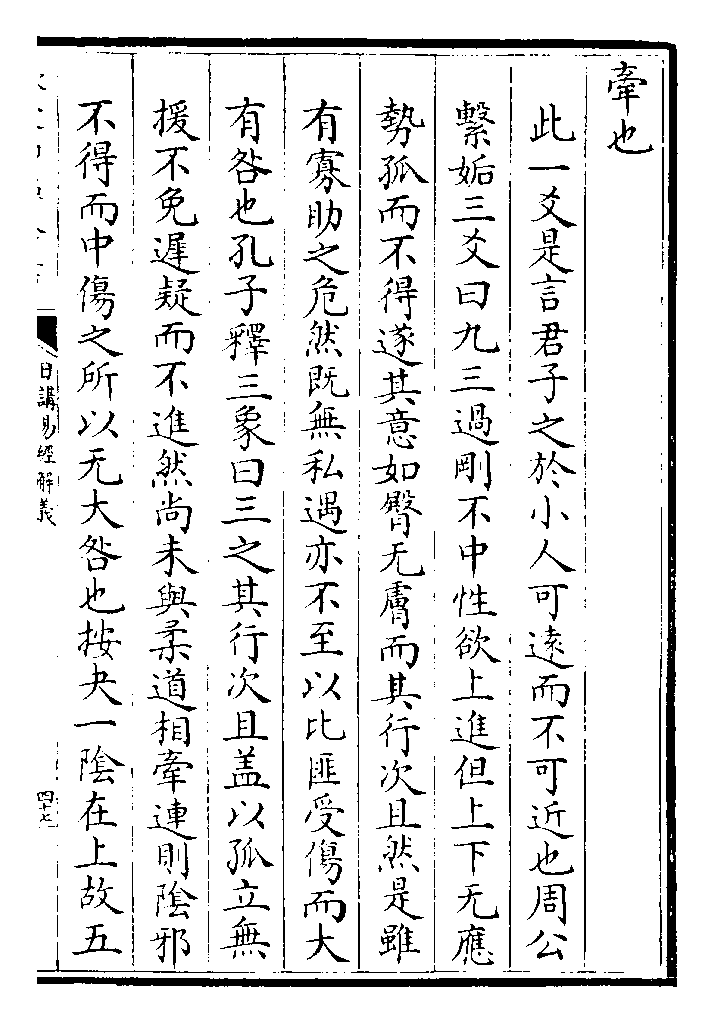 牽也
此一爻是言君子之於小人可遠而不可近也周公
繫姤三爻曰九三過剛不中性欲上進但上下无應
勢孤而不得遂其意如臀无膚而其行次且然是雖
有寡助之危然既無私遇亦不至以比匪受傷而大
有咎也孔子釋三象曰三之其行次且盖以孤立無
援不免遲疑而不進然尚未與柔道相牽連則陰邪
不得而中傷之所以无大咎也按夬一陰在上故五
日講易經解義
四十七